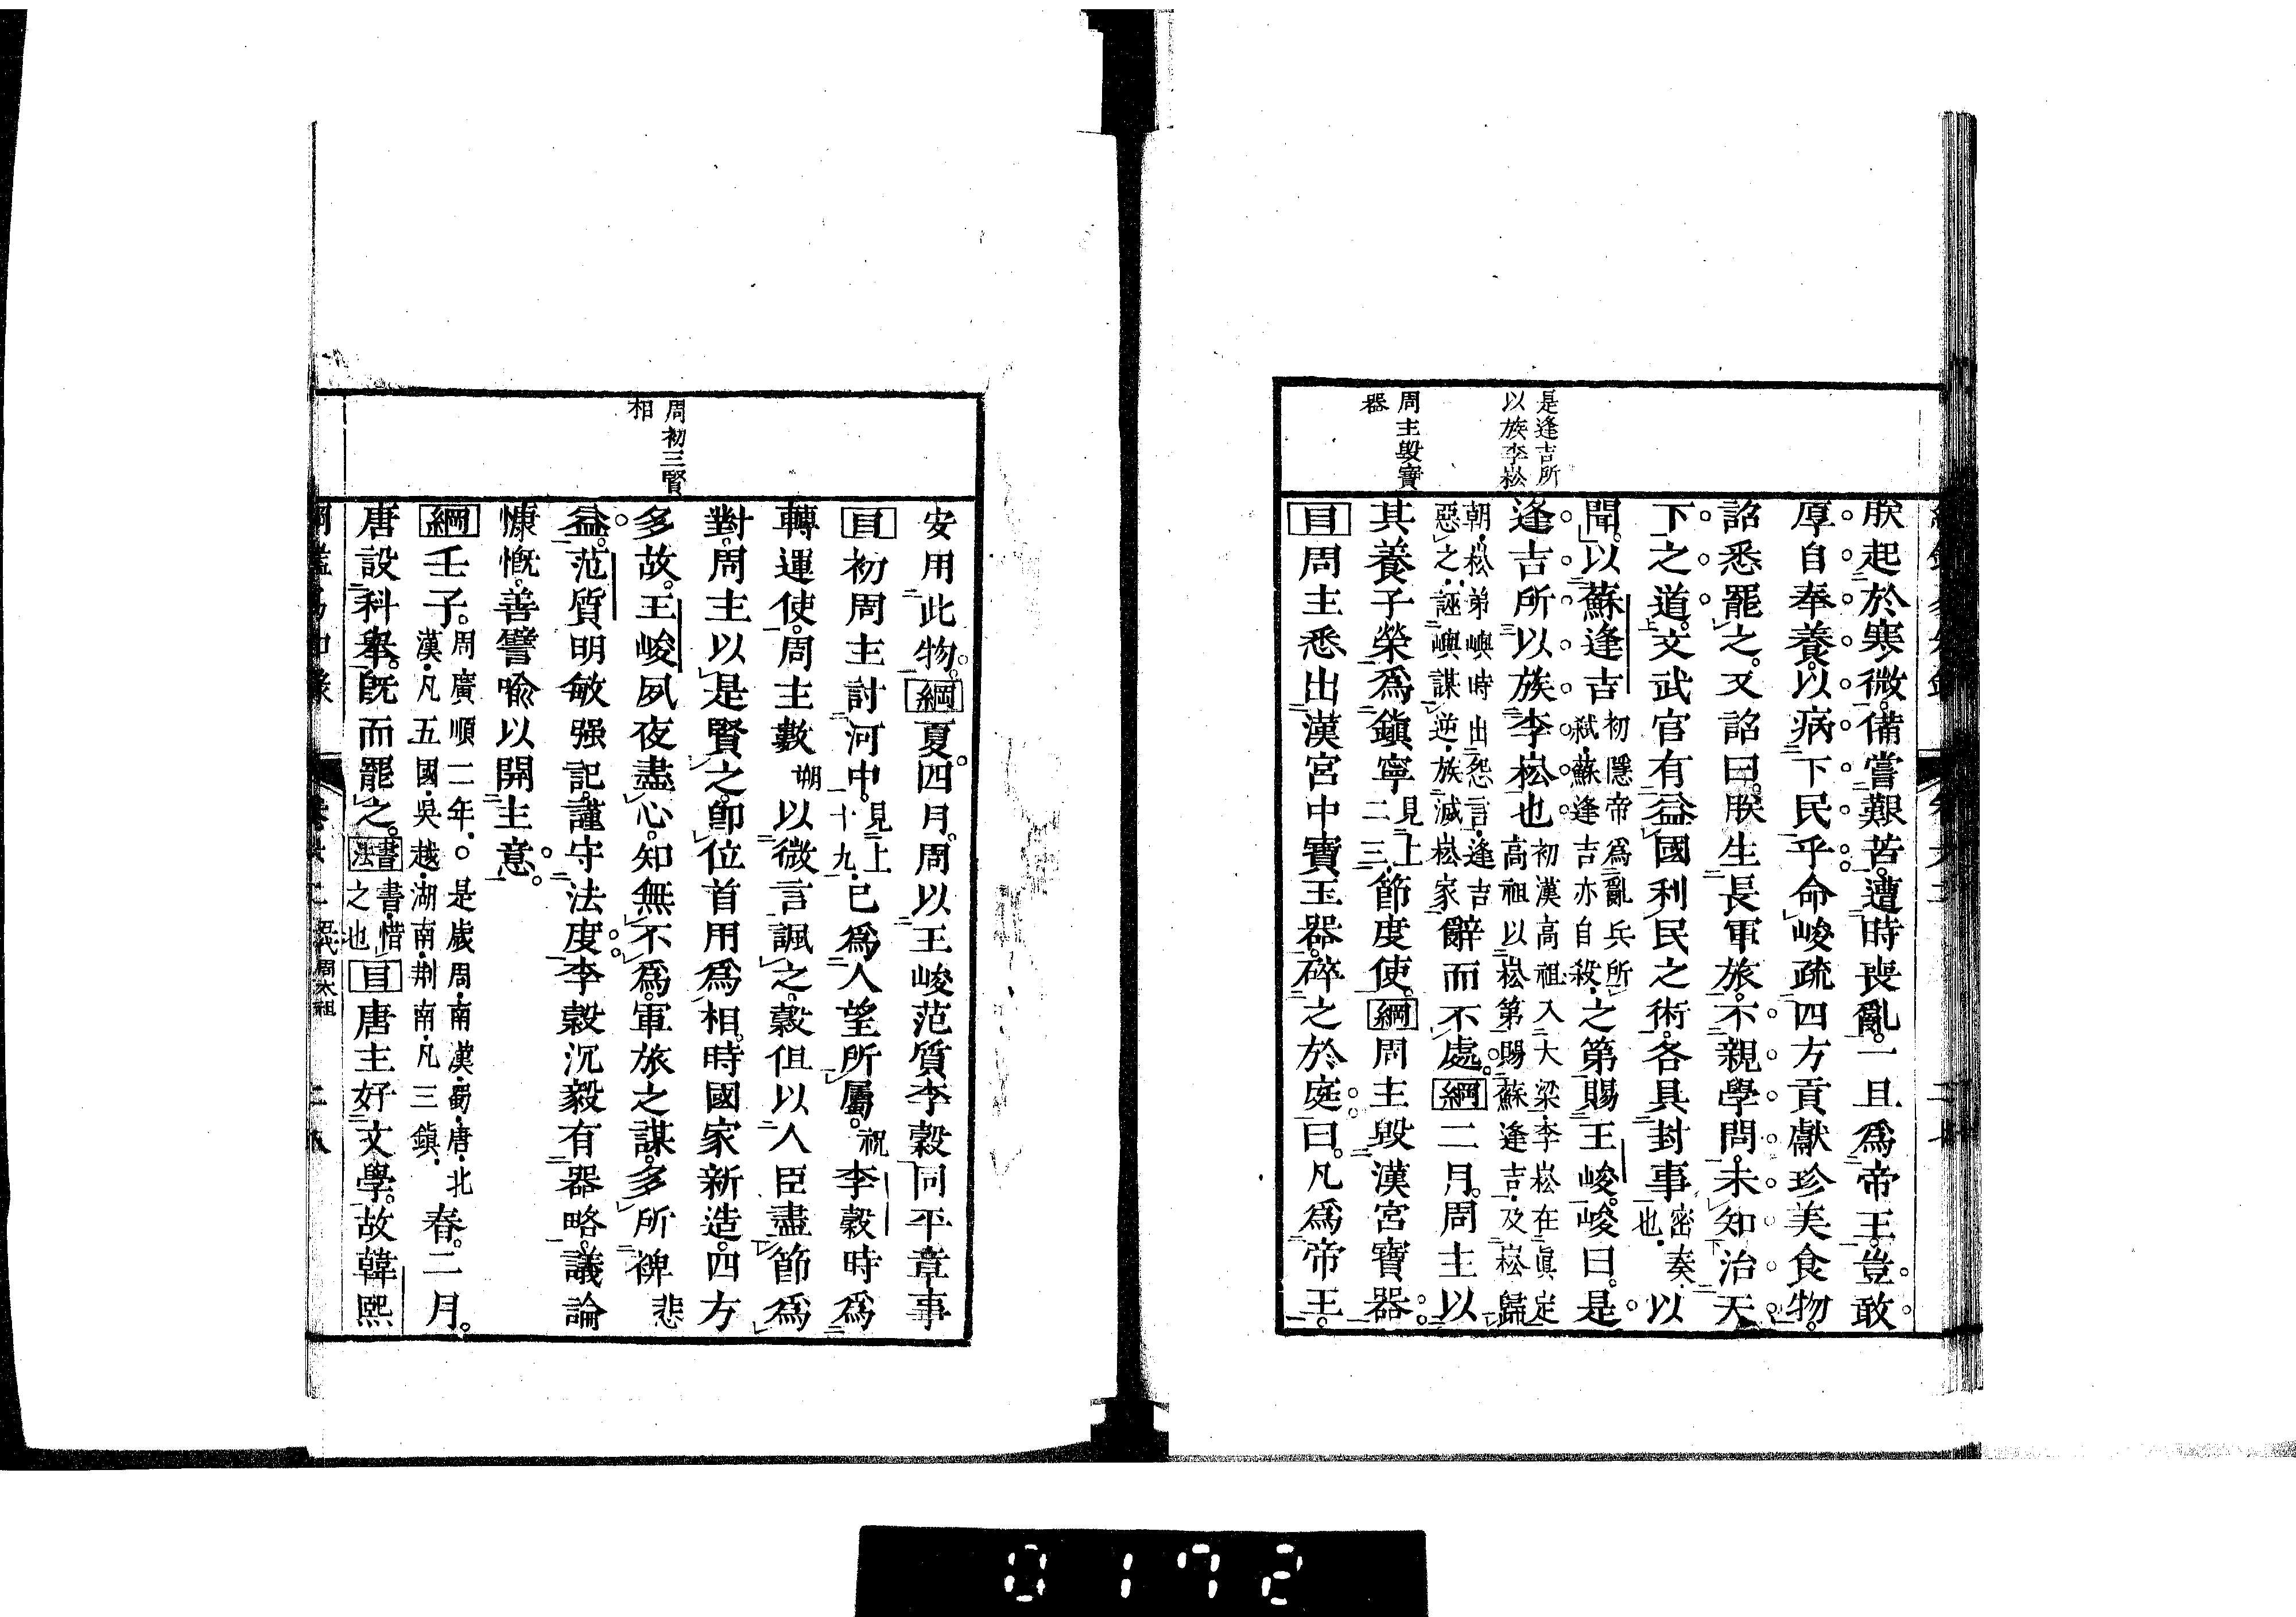 是逢吉所
以族李崧
周主毀寶
器
朕起於寒微。備嘗艱苦。遭時喪亂。一旦爲帝王。豈敢
厚自奉養。以病下民乎。命峻疏四方貢獻珍美食物。
詔悉罷之。又詔曰。朕生長軍旅。不親學問。未知治天
下之道。文武官有益國利民之術。各具封事密奏也。以
聞。以蘇逢吉初隱帝爲亂兵所弒。蘇逢吉亦自殺。之第賜王峻。峻曰。是
逢吉所以族李崧也初漢高祖入大梁。李崧在眞定高祖以崧第賜蘇逢吉。及崧歸
朝。崧弟嶼時出怨言。逢吉惡之。誣嶼謀逆。族滅崧家辭而不處。綱二月。周主以
其養子榮爲鎭寧見上二三。節度使。綱周主毀漢宮寶器。
目周主悉出漢宮中寶玉器。碎之於庭。曰。凡爲帝王。
周初三賢
相
安用此物。綱夏。四月。周以王峻范質李穀同平章事
目初周主討河中。見上十九。已爲人望所屬。祝李穀時爲
轉運使。周主數朔以微言諷之。穀但以人臣盡節爲
對。周主以是賢之。卽位首用爲相。時國家新造。四方
多故。王峻夙夜盡心。知無不爲。軍旅之謀。多所裨悲
益。范質明敏强記。謹守法度。李穀沉毅有器略。議論
慷慨。善譬喩以開主意。
綱壬子。周廣順二年。○是歲周。南漢。蜀。唐。北漢。凡五國。吳越。湖南。荆南。凡三鎭。春。二月。
唐設科舉。旣而罷之。書法書。惜之也目唐主好文學。故韓熙
五代周太祖